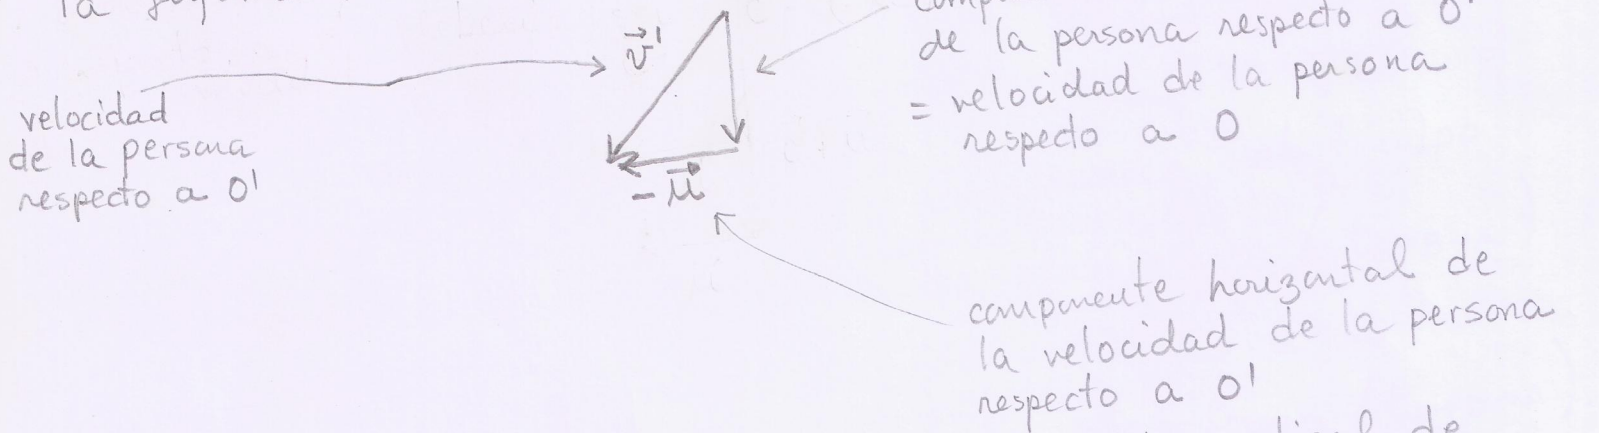 la
de la persona respecto a O'
= velocidad de la persona
respecto a O
v⃗'
velocidad
de la persona
respecto a O'
-u⃗
componente horizontal de
la velocidad de la persona
respecto a O'
de